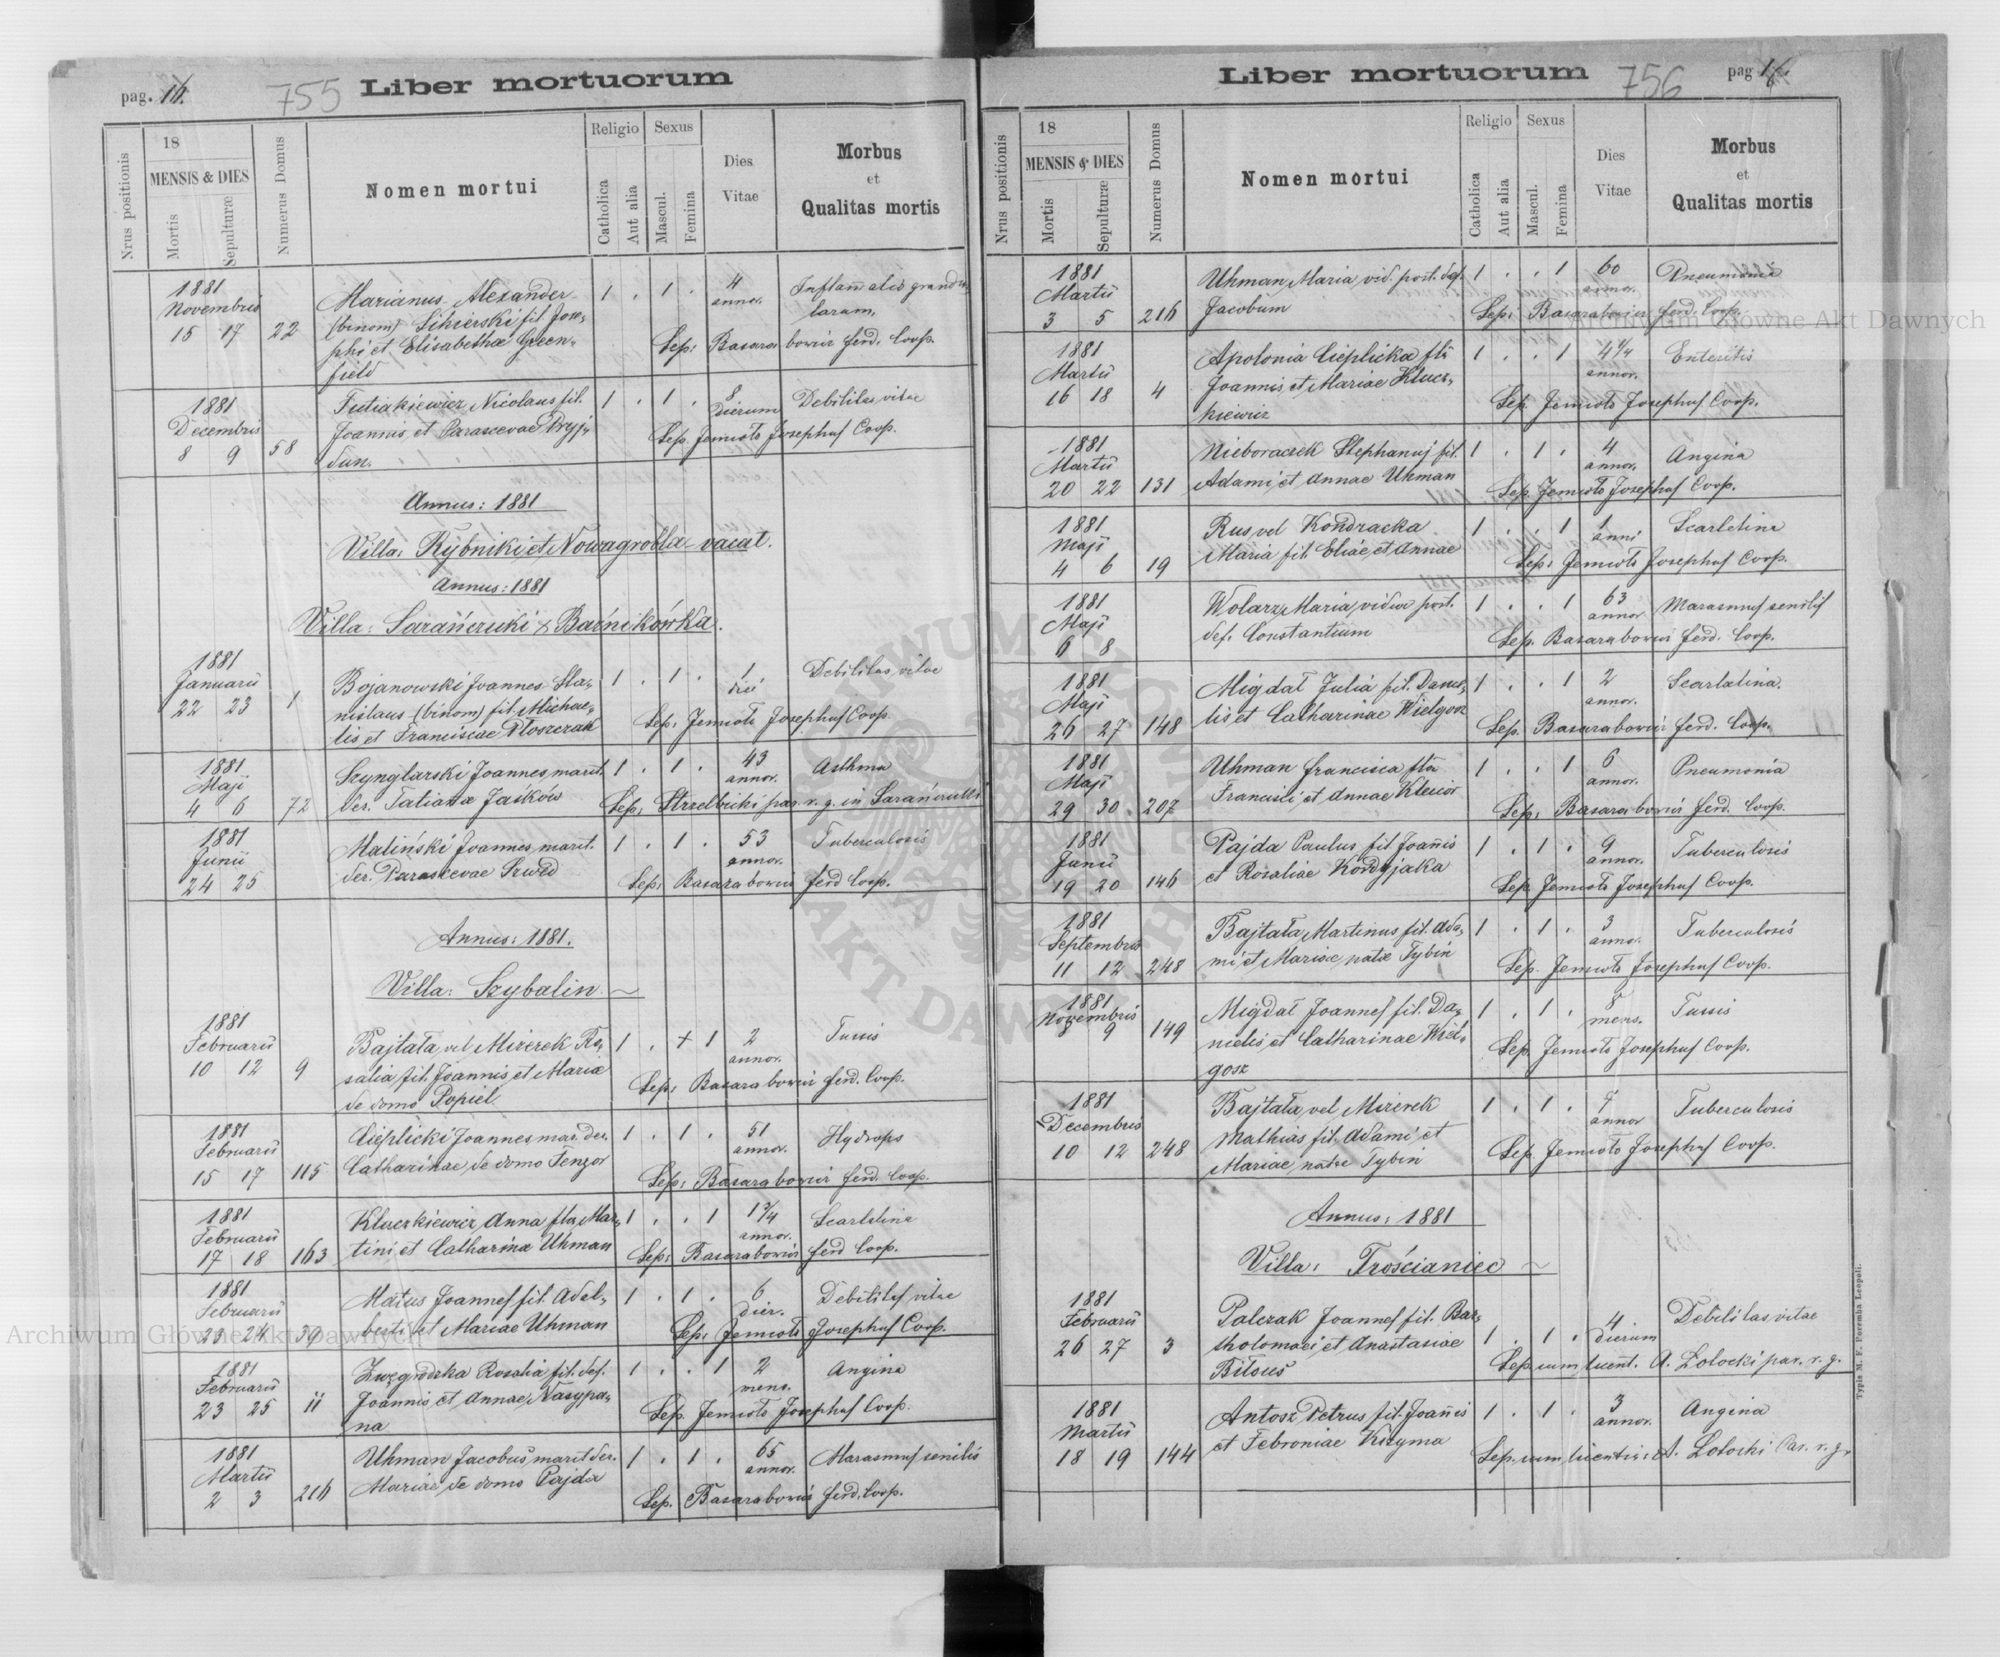 pag.
755
Liber mortuorum
Nrus positionis
18
MENSIS & DIES
Mortis
Sepulturæ
Numerus Domus
Nomen mortui
Religio
Catholica
Aut alia
Sexus
Mascul.
Femina
Dies
Vitae
Morbus
et
Qualitas mortis
1881
Novembris
15 17 22
Marianus Alexander
(binom)
fil. Jose,
phi et Elisabethæ Green,
field
1 . 1 .
4
annor.
Sep: Basarabowicz Ferd. Coop.
1881
Decembris
8 9 58
Nicolaus fil.
Joannis et Parascevae
1 . 1 .
8
dierum
Debilitas vitae
Sep. Jemioło Josephus Coop.
Annus: 1881
Villa: Rybniki et Nowagrobla vacat.
Annus: 1881
Villa: Sarańczuki & Barnikówka.
1881
Januarii
22 23 1
Bojanowski Joannes Sta,
nislaus (binom) fil. Michae,
lis et Franciscae Ptoszczak
1 . 1 .
1
diei
Debilitas vitae
Sep: Jemioło Josephus Coop.
1881
Maji
4 6 72
Szynglarski Joannes marit.
der. Tatiana Jaśków
1 . 1 .
43
annor.
Asthma
Sep: Strzelbicki par. r. g. in Sarańczuki
1881
Junii
24 25
Maliński Joannes marit.
der. Parascevae Szwed
1 . 1 .
53
annor.
Tuberculosis
Sep: Basarabowicz Ferd Coop.
Annus: 1881.
Villa: Szybalin
1881
Februarii
10 12 9
Bajtała vel Mizerek Ro,
salia fil. Joannis et Mariæ
de domo Popiel
1 . + 1
2
annor.
Tussis
Sep: Basarabowicz Ferd. Coop.
1881
Februarii
15 17 115
Cieplicki Joannes mar. der.
Catharinae de domo Tenzor
1 . 1 .
51
annor.
Hydrops
Sep: Basarabowicz Ferd. Coop.
1881
Februarii
17 18 163
Kluczkiewicz Anna flia Mar,
tini et Catharinæ Uhman
1 . . 1
1 3/4
annor.
Scarlatina
Sep: Basarabowicz Ferd Coop.
1881
Februarii
23 24 39
Matus Joannes fil. Adal,
berti et Mariae Uhman
1 . 1 .
6
dier.
Debilitas vitae
Sep: Jemioło Josephus Coop.
1881
Februarii
23 25 11
Rosalia fil. def.
Joannis et Annae Nasypa,
na
1 . . 1
2
mens.
Angina
Sep. Jemioło Josephus Coop.
1881
Martii
2 3 216
Uhman Jacobus marit der.
Mariae de domo Pajda
1 . 1 .
65
annor.
Marasmus senilis
Sep. Basarabowicz Ferd. Coop.
Liber mortuorum
756
pag
Nrus positionis
18
MENSIS & DIES
Mortis
Sepulturæ
Numerus Domus
Nomen mortui
Religio
Catholica
Aut alia
Sexus
Mascul.
Femina
Dies
Vitae
Morbus
et
Qualitas mortis
1881
Martii
3 5 216
Uhman Maria vid. post. def.
Jacobum
1 . . 1
60
annor.
Pneumonia
Sep: Basarabowicz Ferd. Coop.
1881
Martii
16 18 4
Apolonia Cieplicka flia
Joannis et Mariae Klucz,
kiewicz
1 . . 1
4 1/4
annor.
Enteritis
Sep. Jemioło Josephus Coop.
1881
Martii
20 22 131
Nieboraczek Stephanus fil.
Adami et Annae Uhman
1 . 1 .
4
annor.
Angina
Sep. Jemioło Josephus Coop.
1881
Maji
4 6 19
Rus vel Kondracka
Maria fil. Eliae et Annae
1 . . 1
1
anni
Scarletina
Sep: Jemioło Josephus Coop.
1881
Maji
6 8
Wolarz Maria vidua post.
def. Constantium
1 . . 1
63
annor
Marasmus senilis
Sep. Basarabowicz Ferd. Coop.
1881
Maji
26 27 148
Migdał Julia fil. Danie,
lis et Catharinae Wielgosz
1 . . 1
2
annor.
Scarlatina.
Sep. Basarabowicz Ferd. Coop.
1881
Maji
29 30 207
Uhman Francisca flia
Francisci et Annae
1 . . 1
6
annor.
Pneumonia
Sep: Basarabowicz Ferd. Coop.
1881
Junii
19 20 146
Pajda Paulus fil. Joannis
et Rosaliae Kondyjaka
1 . 1 .
9
annor.
Tuberculosis
Sep. Jemioło Josephus Coop.
1881
Septembris
11 12 248
Bajtała Martinus fil. Ada,
mi et Mariae natae Tybin
1 . 1 .
3
annor.
Tuberculosis
Sep. Jemioło Josephus Coop.
1881
Novembris
8 9 149
Migdał Joannes fil. Da,
nielis et Catharinae Wiel,
gosz
1 . 1 .
8
mens.
Tussis
Sep. Jemioło Josephus Coop.
1881
Decembris
10 12 248
Bajtała vel Mizerek
Mathias fil. Adami et
Mariae natae Tybin
1 . 1 .
annor
Tuberculosis
Sep. Jemioło Josephus Coop.
Annus: 1881
Villa: Trościaniec
1881
Februarii
26 27 3
Palczak Joannes fil. Bar,
tholomaei et Anastasiae
Bilous
1 . 1 .
4
dierum
Debilitas vitae
Sep. cum licent. A. Zolocki par. r. g.
1881
Martii
18 19 144
Antosz Petrus fil. Joannis
et Febroniae Kizyma
1 . 1 .
3
annor.
Angina
Sep. cum licentia A. Zolocki Par. r. g.
Typis M. F. Poremba Leopoli.
Archiwum Główne Akt Dawnych
Archiwum Główne Akt Dawnych
ARCHIWUM GŁÓWNE AKT DAWNYCH